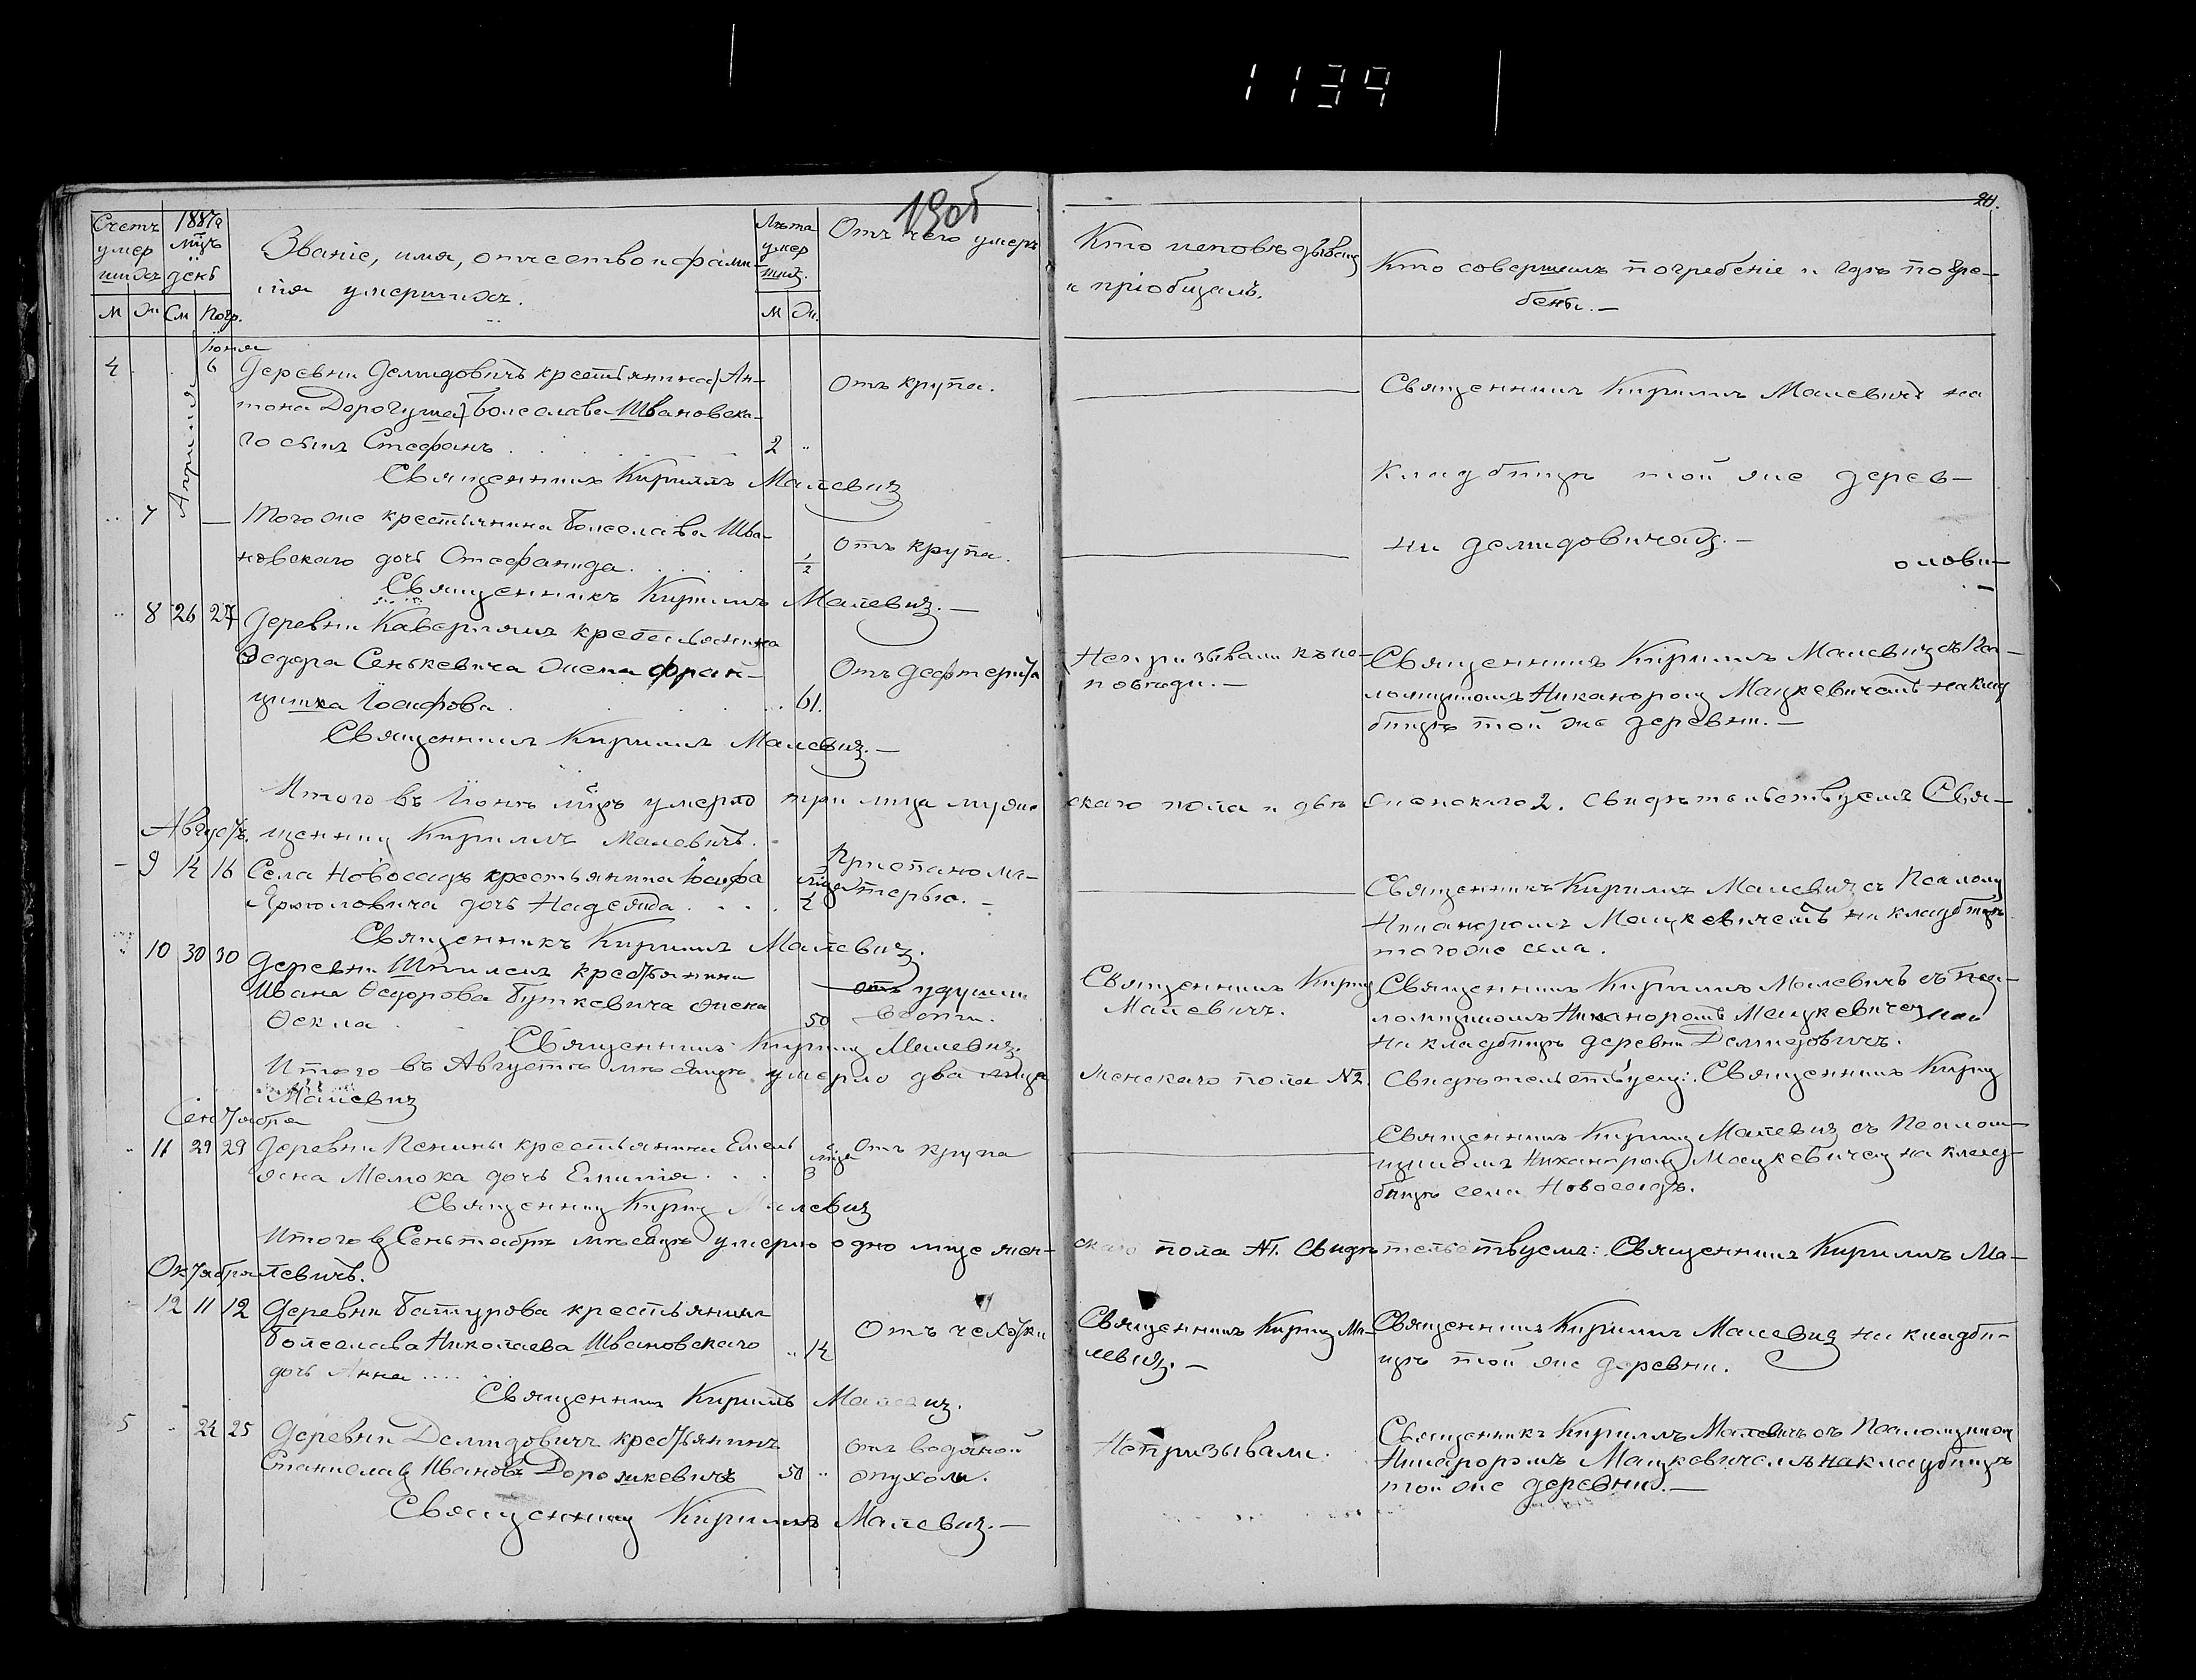 1139
1906
20.
Счетъ умершихъ
1887го мѣсяцъ день
Званіе, имя, отчество и фамилія умершихъ.
Лѣта умерших.
Отъ чего умеръ
Кто исповѣдывалъ и пріобщалъ.
Кто совершилъ погребеніе и гдѣ погребены.—
М Ж См Погр.
М Ж.
Іюня
4 6 Деревни Демидовичъ крестьянина (Ан-
тона Дорогуша) Болеслава Ивановска-
го сынъ Стефанъ . . . 2 ..
Отъ крупа.
Священникъ Кириллъ Малевичъ на
Священникъ Кириллъ Малевичъ
кладбищѣ той же дерев-
Апрѣля
.. 7 — Того же крестьянина Болеслава Ива-
новскаго дочь Стефанида . . . 1/2
отъ крупа.
ни Демидовичахъ.—
Священникъ Кириллъ Малевичъ.—
.. 8 26 27 Деревни крестьянина
Ѳедора Сенькевича жена Фран-
цишка Іосифова . . . 61.
Отъ дефтерита
Не призывали къ ис-
повѣди.—
Священникъ Кириллъ Малевичъ съ Пса-
ломщикомъ Никаноромъ Мацкевичемъ на клад
бищѣ той же деревни.—
Священникъ Кириллъ Малевичъ.—
Итого въ Іюнѣ мѣсяцѣ умерло три лица муже
скаго пола и двѣ женскаго 2. Свидѣтельствуемъ Свя-
щенникъ Кириллъ Малевичъ.
Августъ.
- 9 14 16 Села Новосадъ крестьянина Іосифа
Ярмоловича дочь Надежда . . .
Священникъ Кириллъ Малевичъ съ Псалом
Никаноромъ Мацкевичемъ на кладбищѣ
того же села.
Священникъ Кириллъ Малевичъ.
.. 10 30 30 Деревни крестьянина
Ивана Ѳедорова Буткевича жена
Ѳекла . . . 50
отъ удушли
вости.
Священникъ Кирил
Малевичъ.
Священникъ Кириллъ Малевичъ съ Пса-
ломщикомъ Никаноромъ Мацкевичемъ
на кладбищѣ деревни Демидовичъ.
Священникъ Кирилъ Малевичъ
Итого въ Августѣ мѣсяцѣ умерло два лица
женскаго пола №2. Свидѣтельствуемъ: Священникъ Кирил
Малевичъ
Сентября
.. 11 29 29 Деревни Пенины крестьянина Емель
яна Мелюка дочь Емилія . . . мѣсяц 3
Отъ крупа
Священникъ Кирилъ Малевичъ съ Псалом-
щикомъ Никаноромъ Мацкевичемъ на клад-
бищѣ села Новосадъ.
Священникъ Кирил Малевичъ
Итого въ Сентябрѣ мѣсяцѣ умерло одно лице жен-
скаго пола №1. Свидѣтельствуемъ: Священникъ Кириллъ Ма-
левичъ.
Октября
12 11 12 Деревни Батурова крестьянина
Болеслава Николаева Ивановскаго
дочь Анна ..... .. 14
Отъ чехотки
Священникъ Кирилъ Ма-
левичъ.—
Священникъ Кириллъ Малевичъ на кладби-
щѣ той же деревни.
Священникъ Кириллъ Малевичъ.
5 .. 24 25 Деревни Демидовичъ крестьянинъ
Станиславъ Ивановъ Дорошкевичъ 50 ..
отъ водяной
опухоли.
Не призывали.
Священникъ Кириллъ Малевичъ съ Псаломщиком
Никаноромъ Мацкевичемъ на кладбищѣ
той же деревни.—
Священникъ Кириллъ Малевичъ.—